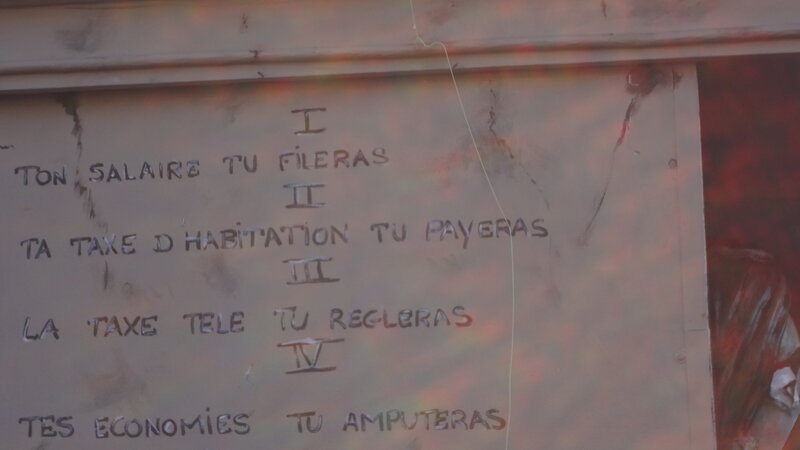 I
TON SALAIRE TU FILERAS
II
TA TAXE D HABITATION TU PAYERAS
III
LA TAXE TELE TU REGLERAS
IV
TES ECONOMIES TU AMPUTERAS